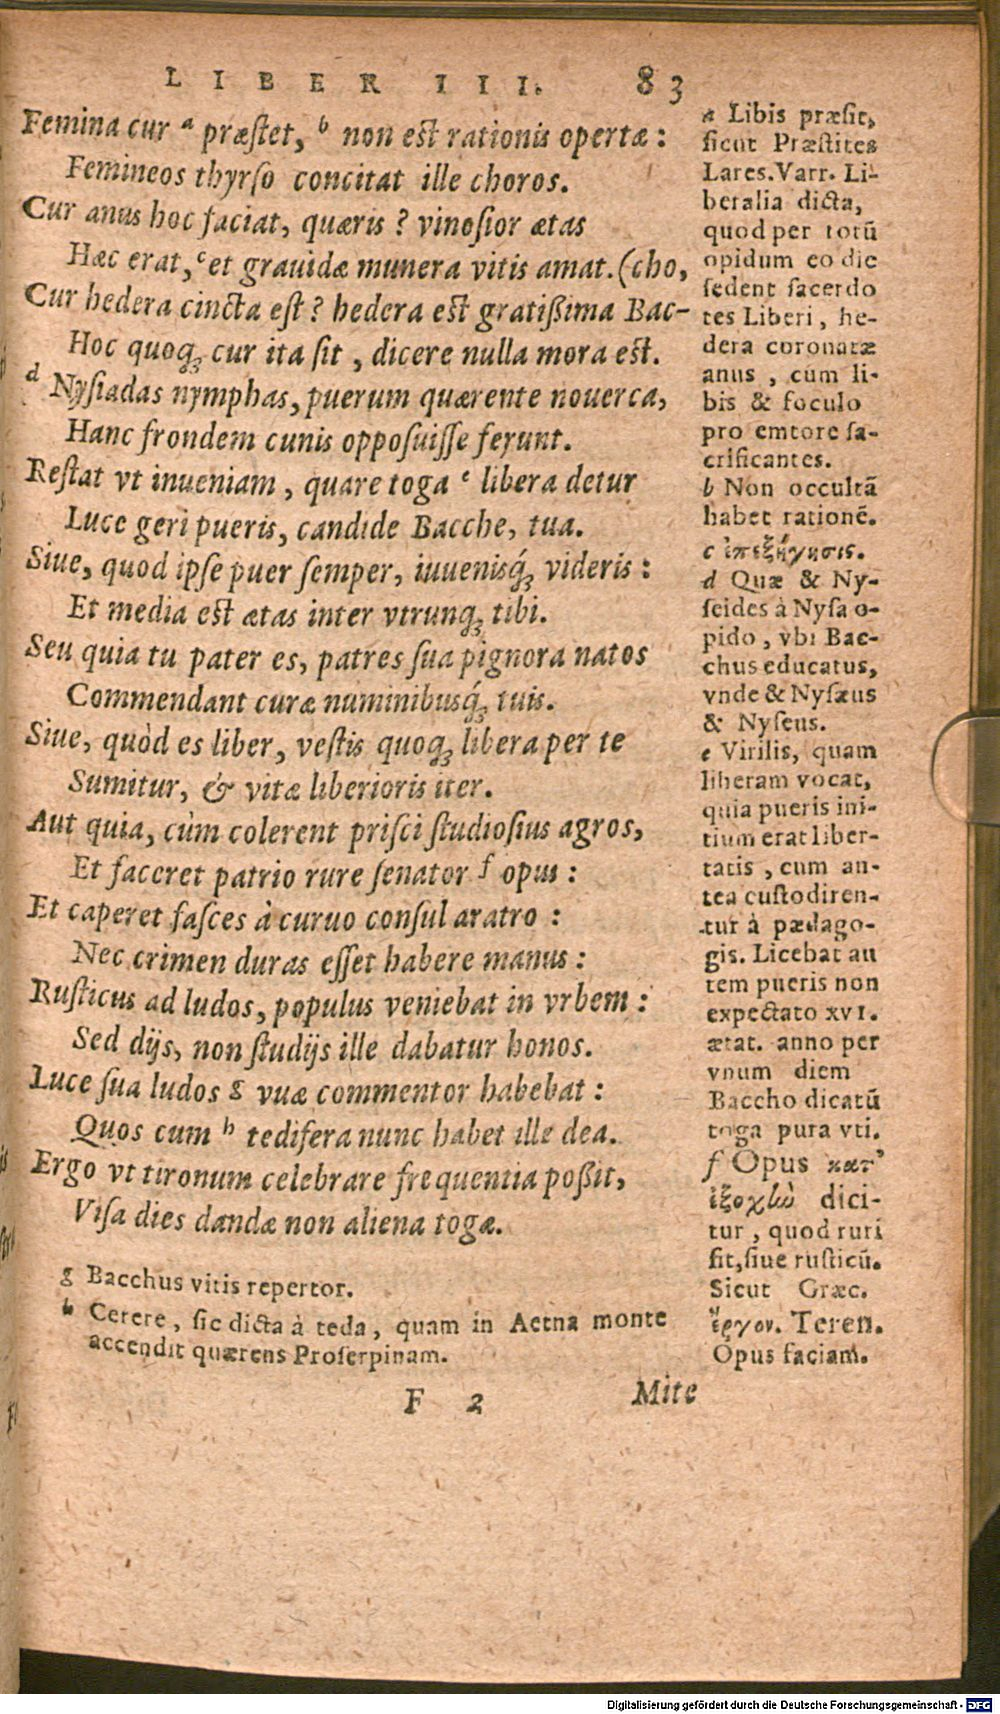 LIBER III. 83
Femina cur a præstet, b non est rationis opertæ:
Femineos thyrso concitat ille choros.
Cur anus hoc faciat, quæris? vinosior ætas
Hæc erat, c et grauidæ munera vitis amat. (cho,
Cur hedera cincta est? hedera est gratißima Bac-
Hoc quoq; cur ita sit, dicere nulla mora est.
d Nysiadas nymphas, puerum quærente nouerca,
Hanc frondem cunis opposuisse ferunt.
Restat vt inueniam, quare toga e libera detur
Luce geri pueris, candide Bacche, tua.
Siue, quod ipse puer semper, iuuenisq́; videris:
Et media est ætas inter vtrunq; tibi.
Seu quia tu pater es, patres sua pignora natos
Commendant curæ numinibusq́; tuis.
Siue, quòd es liber, vestis quoq; libera per te
Sumitur, & vitæ liberioris iter.
Aut quia, cùm colerent prisci studiosius agros,
Et faceret patrio rure senator f opus:
Et caperet fasces à curuo consul aratro:
Nec crimen duras esset habere manus:
Rusticus ad ludos, populus veniebat in vrbem:
Sed dijs, non studijs ille dabatur honos.
Luce sua ludos g vuæ commentor habebat:
Quos cum h tedifera nunc habet ille dea.
Ergo vt tironum celebrare frequentia poßit,
Visa dies dandæ non aliena togæ.
g Bacchus vitis repertor.
h Cerere, sic dicta à teda, quam in Aetna monte
accendit quærens Proserpinam.
a Libis præsit,
sicut Præstites
Lares. Varr. Li-
beralia dicta,
quod per totũ
opidum eo die
sedent sacerdo
tes Liberi, he-
dera coronatæ
anus, cum li-
bis & foculo
pro emtore sa-
crificantes.
b Non occultã
habet rationẽ.
c ἐπεξήγησις.
d Quæ & Ny-
seides à Nysa o-
pido, vbi Bac-
chus educatus,
vnde & Nysæus
& Nyseus.
e Virilis, quam
liberam vocat,
quia pueris ini-
tium erat liber-
tatis, cum an-
tea custodiren-
tur à pædago-
gis. Licebat au
tem pueris non
expectato XVI.
ætat. anno per
vnum diem
Baccho dicatũ
toga pura vti.
f Opus κατ'
ἐξοχὴν dici-
tur, quod ruri
sit, siue rusticũ.
Sicut Græc.
ἔργον. Teren.
Opus faciam.
F 2 Mite
Digitalisierung gefördert durch die Deutsche Forschungsgemeinschaft - DFG